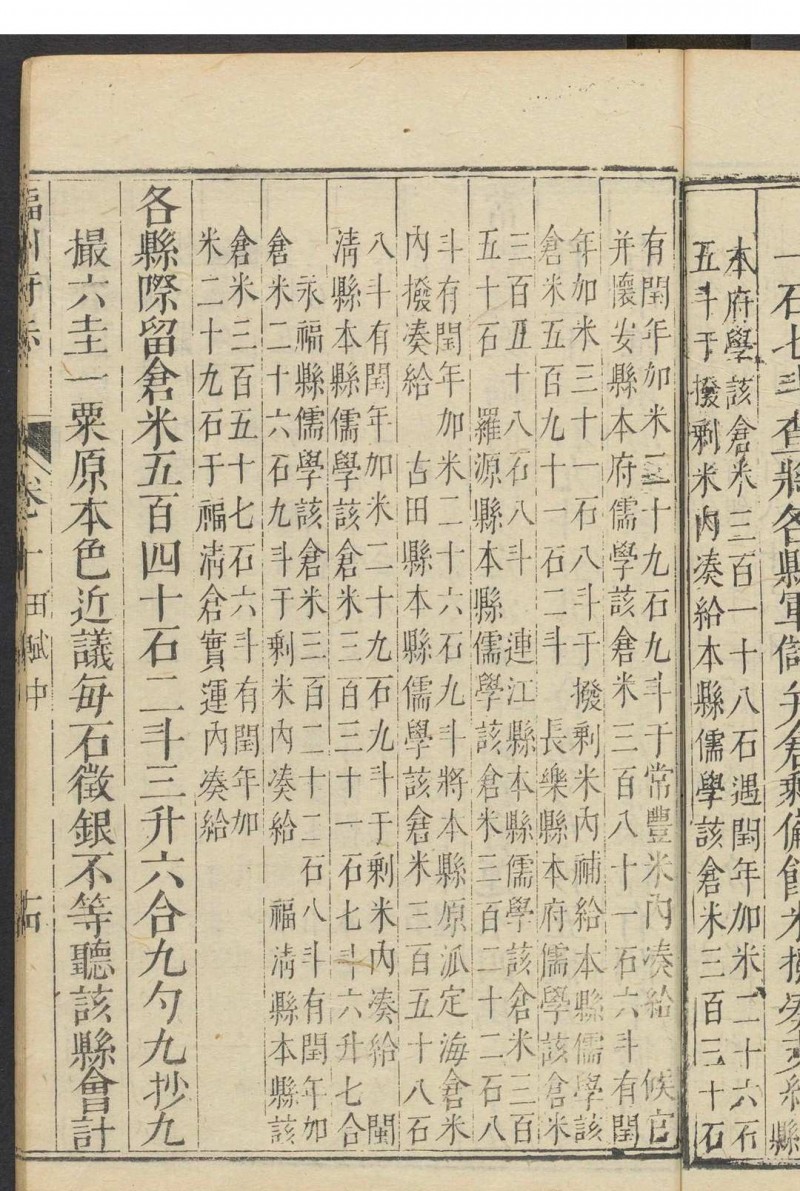 一石七斗查將各縣軍儲弁倉剩備餘米撥湊支給縣
本府學該倉米三百一十八石遇閏年加米二十六石
五斗于撥剩米內湊給本縣儒學該倉米三百三十石
有閏年加米三十九石九斗于常豐米內湊給　候官
并懷安縣本府儒學該倉米三百八十一石六斗有閏
年加米三十一石八斗于撥剩米內補給本縣儒學該
倉米五百九十一石二斗　長樂縣本府儒學該倉米
三百五十八石八斗　連江縣本縣儒學該倉米三百
五十石　羅源縣本縣儒學該倉米三百二十二石八
斗有閏年加米二十六石九斗將本縣原派定海倉米
內撥湊給　古田縣本縣儒學該倉米三百五十八石
八斗有閏年加米二十九石九斗于剩米內湊給　閩
清縣本縣儒學該倉米三百三十一石七斗六升七合
永福縣儒學該倉米三百二十二石八斗有閏年加
倉米二十六石九斗于剩米內湊給　福清縣本縣該
倉米三百五十七石六斗有閏年加
米二十九石于福清倉實運內湊給
各縣際留倉米五百四十石二斗三升六合九勺九抄九
撮六圭一粟原本色近議每石徵銀不等聽該縣會計
福州府志　卷十　田賦中